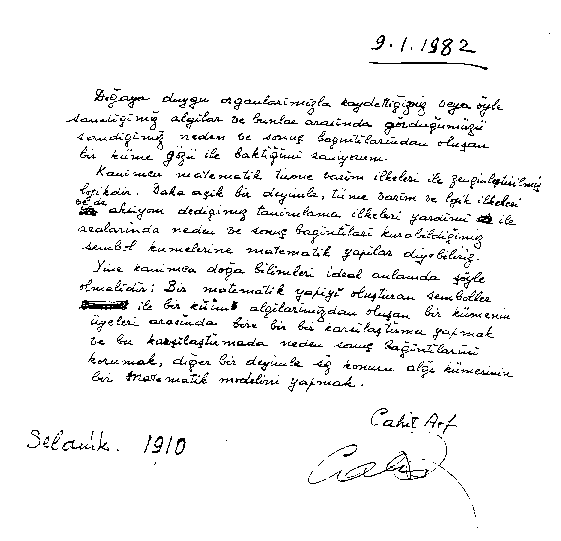 9.1.1982
Doğaya duygu organlarımızla kaydettiğimiz veya öyle
sandığımız algılar ve bunlar arasında gördüğümüzü
sandığımız neden ve sonuç bağıntılarından oluşan
bir küme gözü ile baktığımı sanıyorum.
Kanımca matematik tüme varım ilkeleri ile zenginleştirilmiş
lojikdir. Daha açık bir deyimle, tüme varım ve lojik ilkeleri
ve de aksiyom dediğimiz tanımlama ilkeleri yardımı ile
aralarında neden ve sonuç bağıntıları kurabildiğimiz
sembol kümelerine matematik yapılar diyebiliriz.
Yine kanımca doğa bilimleri ideal anlamda şöyle
olmalıdır: Bir matematik yapıyı oluşturan semboller
ile bir algılarımızdan oluşan bir kümenin
üyeleri arasında bire bir bir karşılaştırma yapmak
ve bu karşılaştırmada neden sonuç bağıntılarını
korumak, diğer bir deyimle söz konusu algı kümesinin
bir Matematik modelini yapmak.
Cahit Arf
Selanik. 1910